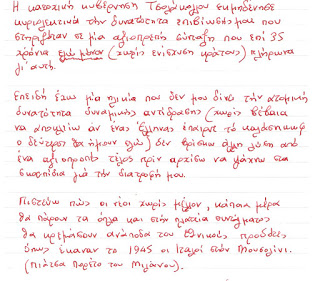 Η κατοχική κυβέρνηση Τσολάκογλου εκμηδένισε
κυριολεκτικά την δυνατότητα επιβίωσής μου που
στηριζόταν σε μια αξιοπρεπή σύνταξη που επί 35
χρόνια εγώ μόνον (χωρίς ενίσχυση κράτους) πλήρωνα
γι' αυτή.
Επειδή έχω μια ηλικία που δεν μου δίνει την ατομική
δυνατότητα δυναμικής αντίδρασης (χωρίς βέβαια
να αποκλείω αν ένας Έλληνας έπαιρνε το καλάσνικωφ
ο δεύτερος θα ήμουν εγώ) δεν βρίσκω άλλη λύση από
ένα αξιοπρεπές τέλος πριν αρχίσω να ψάχνω στα
σκουπίδια για την διατροφή μου.
Πιστεύω πως οι νέοι χωρίς μέλλον, κάποια μέρα
θα πάρουν τα όπλα και στην πλατεία Συντάγματος
θα κρεμάσουν ανάποδα τους εθνικούς προδότες
όπως έκαναν το 1945 οι Ιταλοί στον Μουσολίνι.
(Πιάτσα Πορέτο του Μιλάνου).